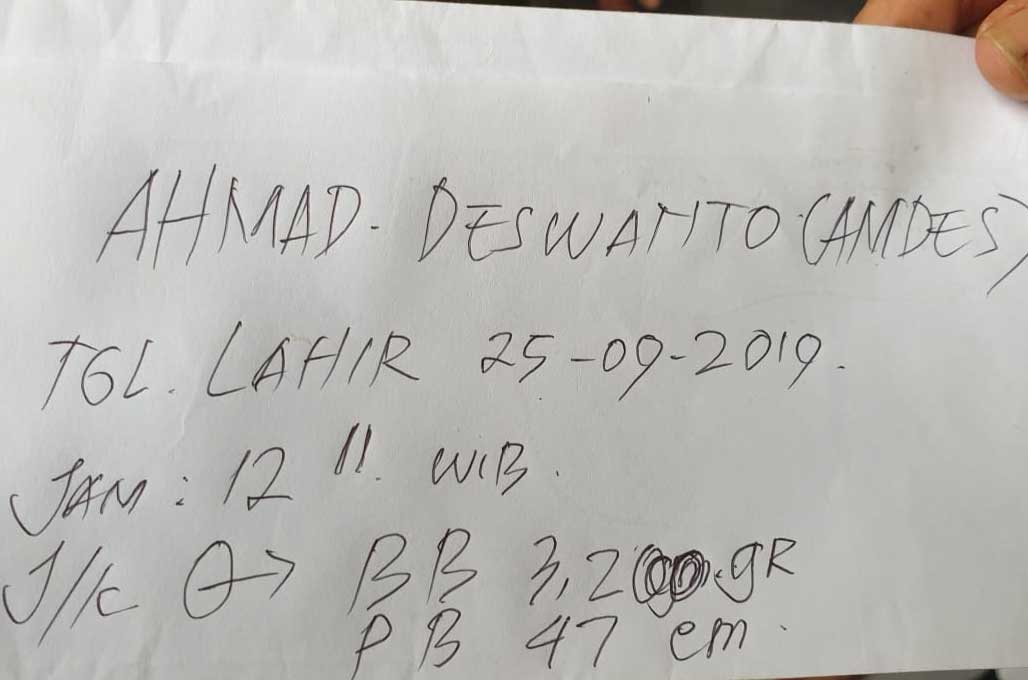 AHMAD. DESWANTO (AMDES)
TGL. LAHIR 25-09-2019.
JAM : 12 11. WIB.
J/K → BB 3,200.gR
PB 47 cm.